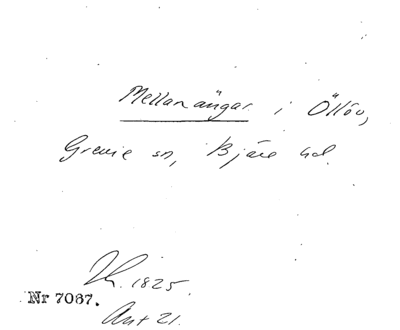 Mellanängar i Öllöv,
Grevie sn, Bjäre hd.
Th. 1825.
Nr 7067.
Ant 21.